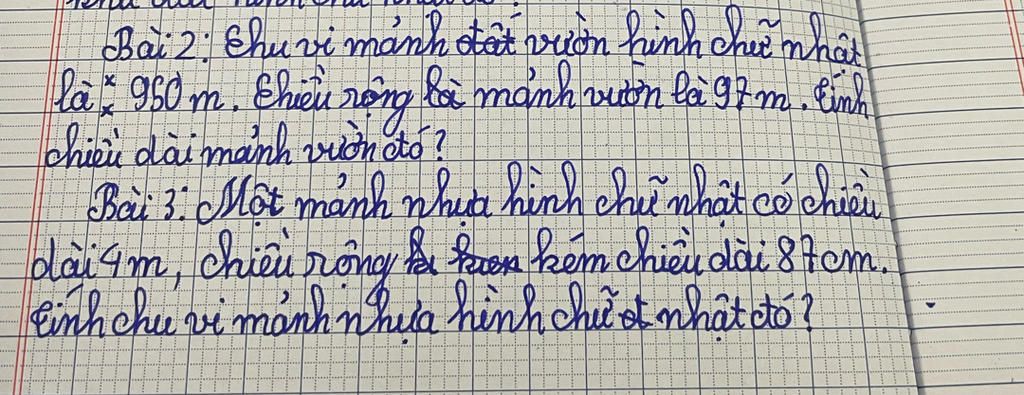 Bài 2: Chu vi mảnh đất vườn hình chữ nhật
là 960 m. Chiều rộng là mảnh vườn là 97 m. Tính
chiều dài mảnh vườn đó?
Bài 3: Một mảnh nhựa hình chữ nhật có chiều
dài 4 m, chiều rộng kém chiều dài 87cm.
Tính chu vi mảnh nhựa hình chữ nhật đó?